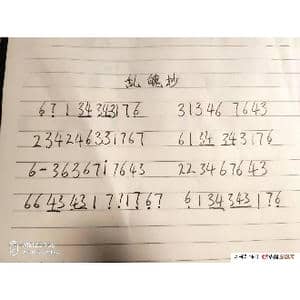 乱魄抄
6 7 1 34 343176 31346 7643
234246331767 6134 343176
6-3636717643 223467643
6643431771767 6134343176